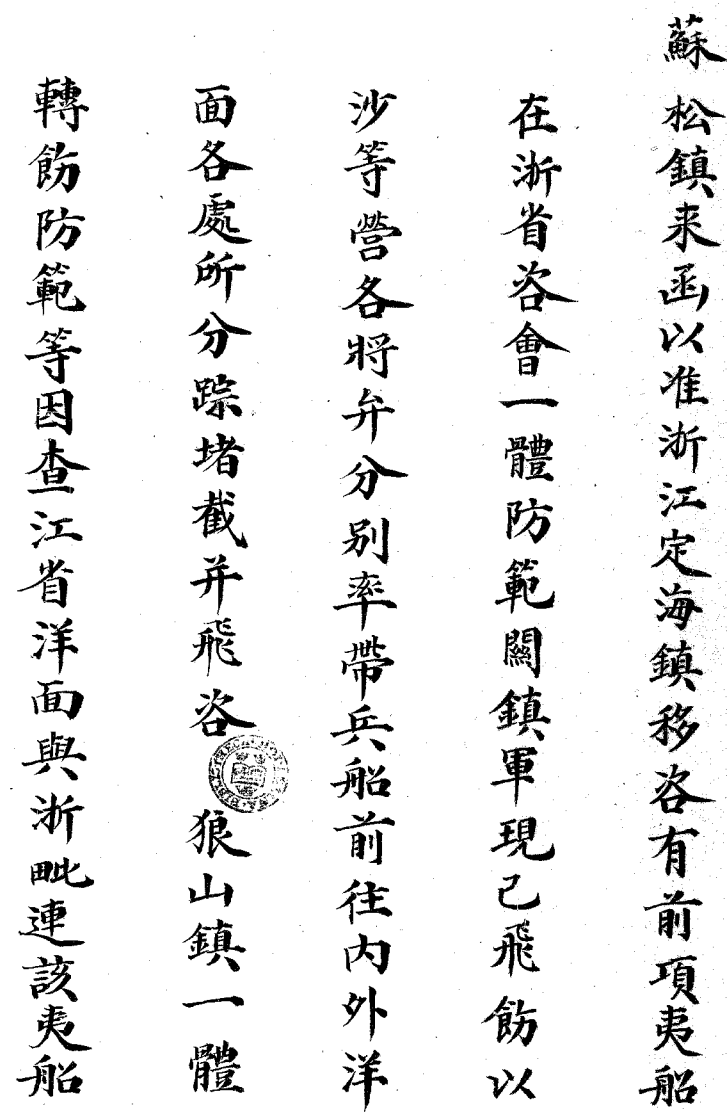 蘇松鎮来函以准浙江定海鎮移咨有前項夷船
在浙省咨會一體防範關鎮軍現已飛飭以
沙等營各將弁分別率帶兵船前往內外洋
面各處所分踪堵截并飛咨 狼山鎮一體
轉飭防範等因查江省洋面與浙毗連該夷船